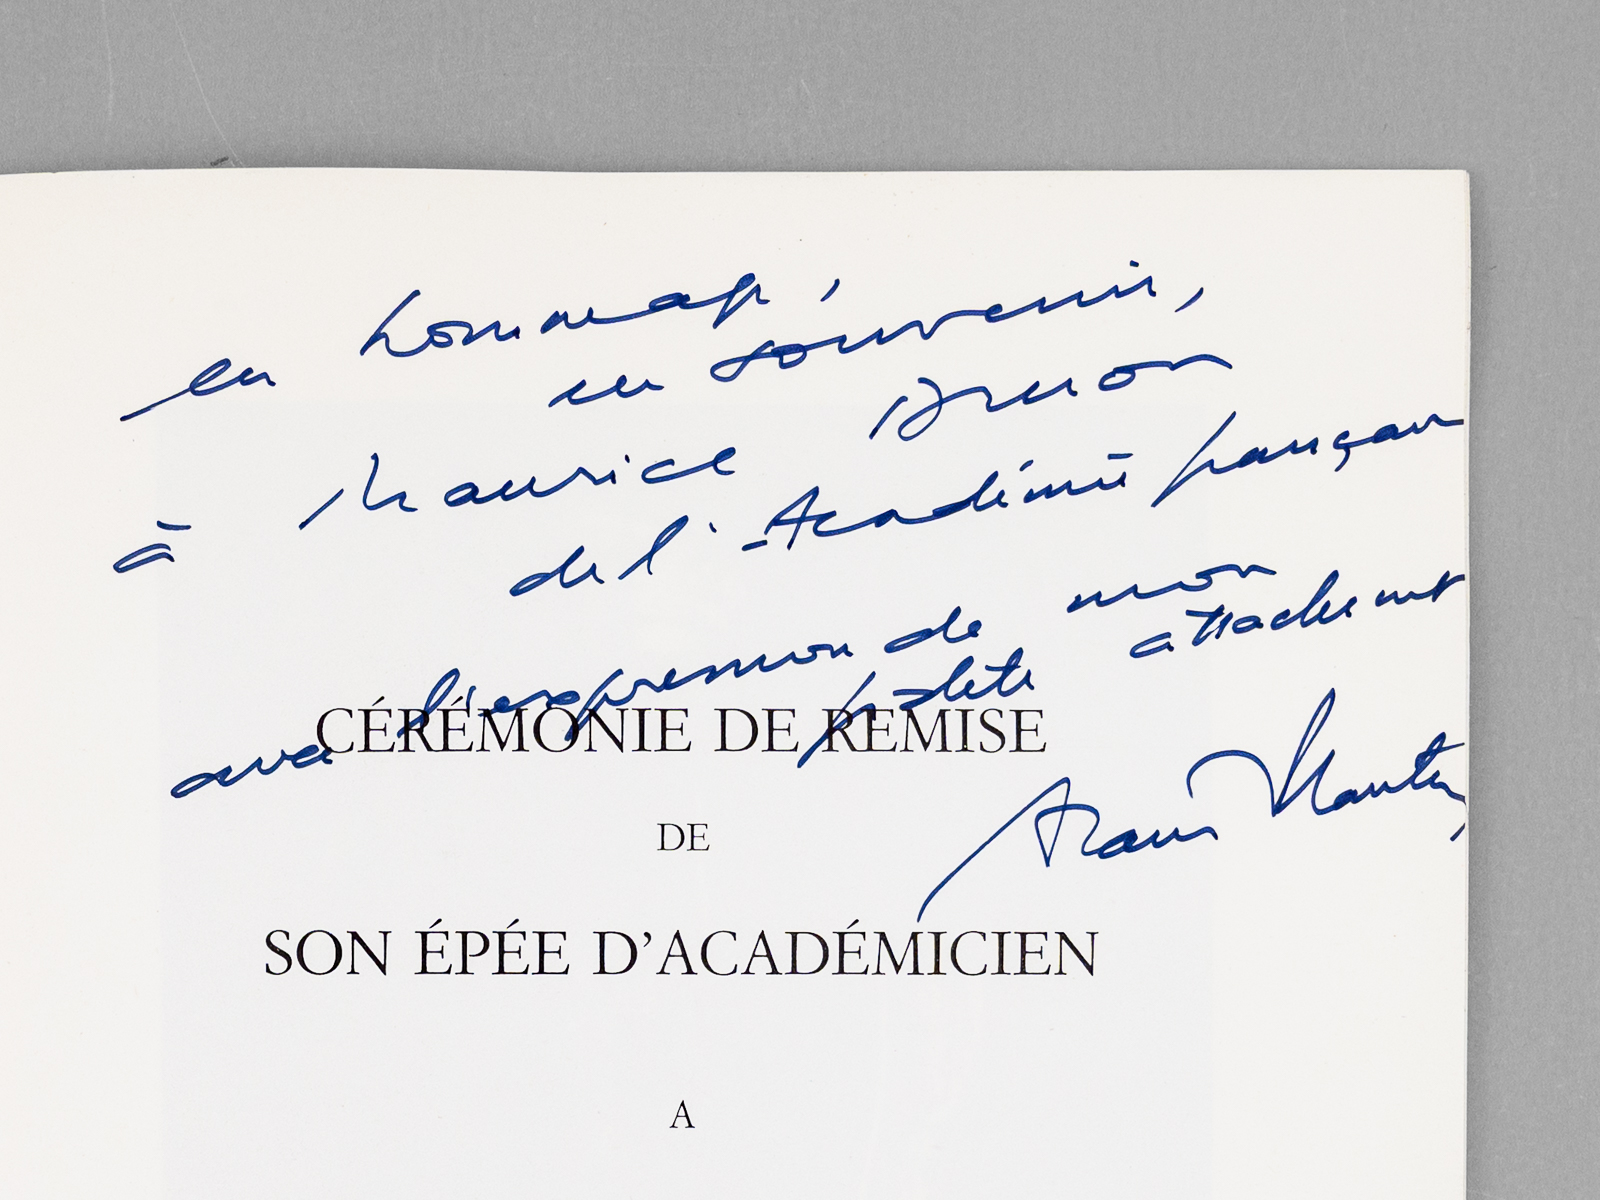 en hommage,
en souvenir,
à Maurice Druon
de l'Académie française
avec l'expression de mon
fidèle attachement
Alain
CÉRÉMONIE DE REMISE
DE
SON ÉPÉE D'ACADÉMICIEN
A